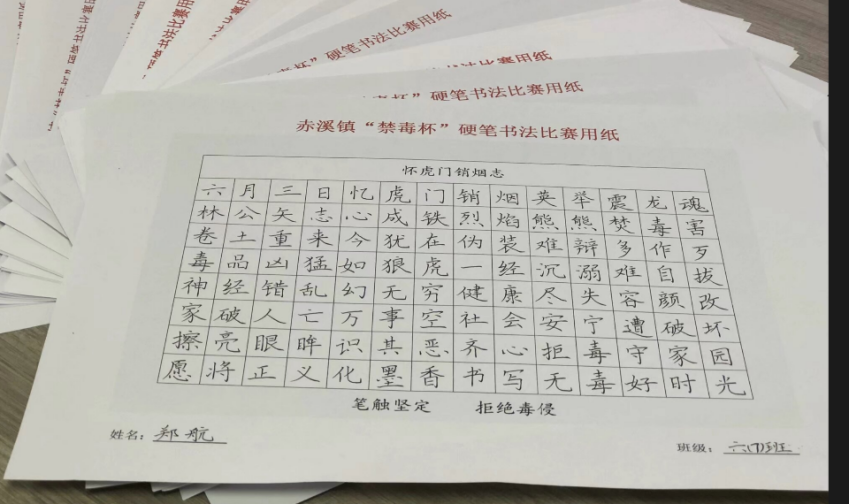 硬笔书法比赛用纸
杯”硬笔书法比赛用纸
赤溪镇“禁毒杯”硬笔书法比赛用纸
怀虎门销烟志
六月三日忆虎门销烟英举震龙魂
林公矢志心成铁烈焰熊熊焚毒害
卷土重来今犹在伪装难辩多作歹
毒品凶猛如狼虎一经沉溺难自拔
神经错乱幻无穷健康尽失容颜改
家破人亡万事空社会安宁遭破坏
擦亮眼眸识其恶齐心拒毒守家园
愿将正义化墨香书写无毒好时光
笔触坚定 拒绝毒侵
姓名：郑航
班级：六(7)班